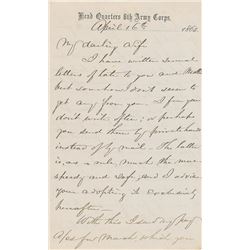 Head Quarters 8th Army Corps,
April 16th 186
My darling
I have written several
letters of late to you and
but somehow don't seem to
get any from you. I fear you
don't write often; or perhaps
you send them by private hands
instead of by mail. The latter
is, as a rule, much the more
speedy and safe, and I advise
your adopting it exclusively
hereafter.
With this I send my
for March, which you